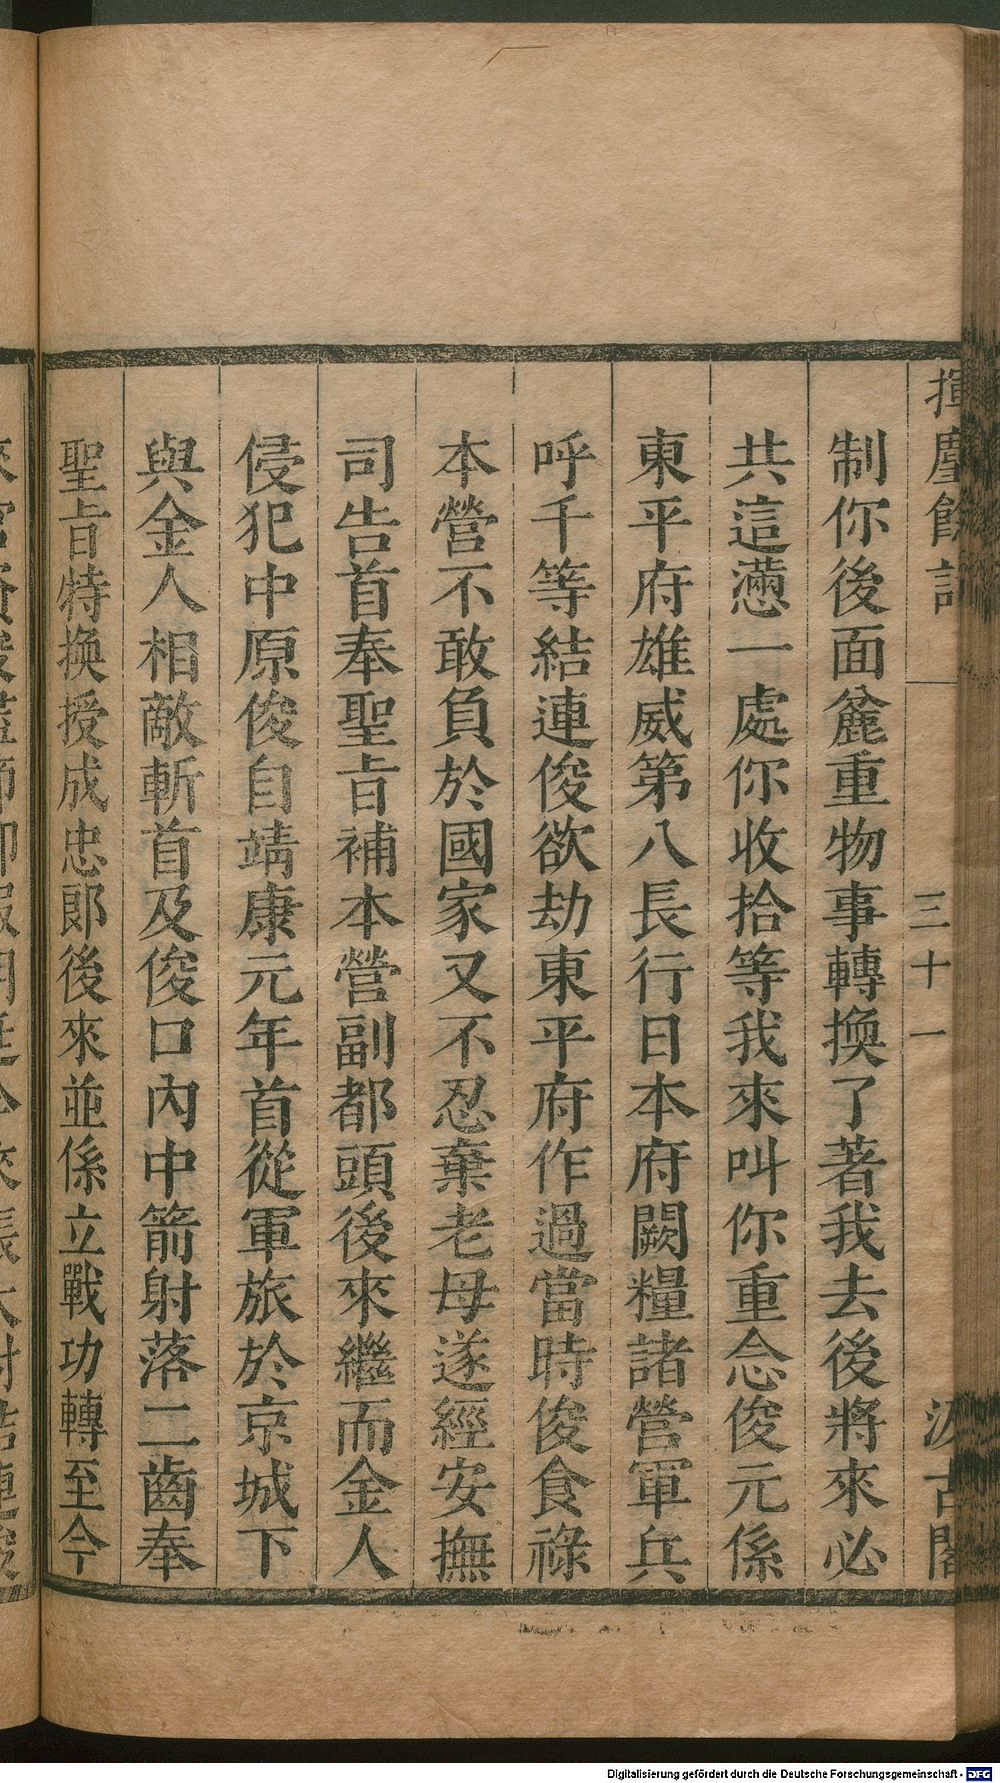 揮麈餘話
三十一
汲古閣
制你後面麄重物事轉換了著我去後將來必
共這懣一處你收拾等我來叫你重念俊元係
東平府雄威第八長行日本府闕糧諸營軍兵
呼千等結連俊欲劫東平府作過當時俊食祿
本營不敢負於國家又不忍棄老母遂經安撫
司告首奉聖旨補本營副都頭後來繼而金人
侵犯中原俊自靖康元年首從軍旅於京城下
與金人相敵斬首及俊口內中箭射落二齒奉
聖旨特換授成忠郞後來並係立戰功轉至今
Digitalisierung gefördert durch die Deutsche Forschungsgemeinschaft - DFG